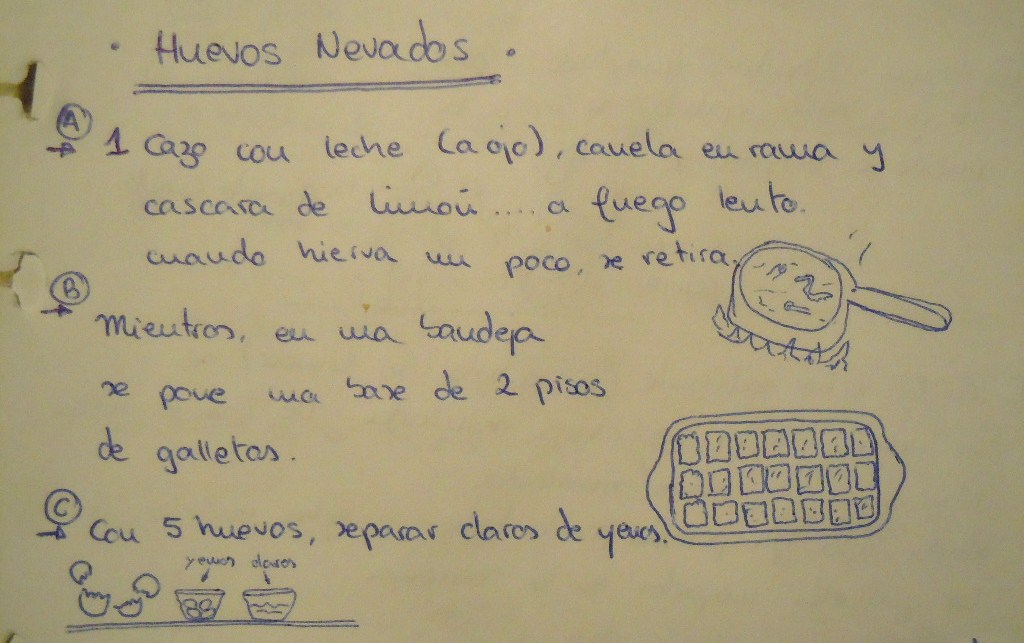 · Huevos Nevados ·
A
→ 1 Cazo con leche (a ojo), canela en rama y
cascara de limón.... a fuego lento.
cuando hierva un poco, se retira.
B
→ Mientras, en una bandeja
se pone una base de 2 pisos
de galletas.
C
→ Con 5 huevos, separar claras de yemas.
yemas claras